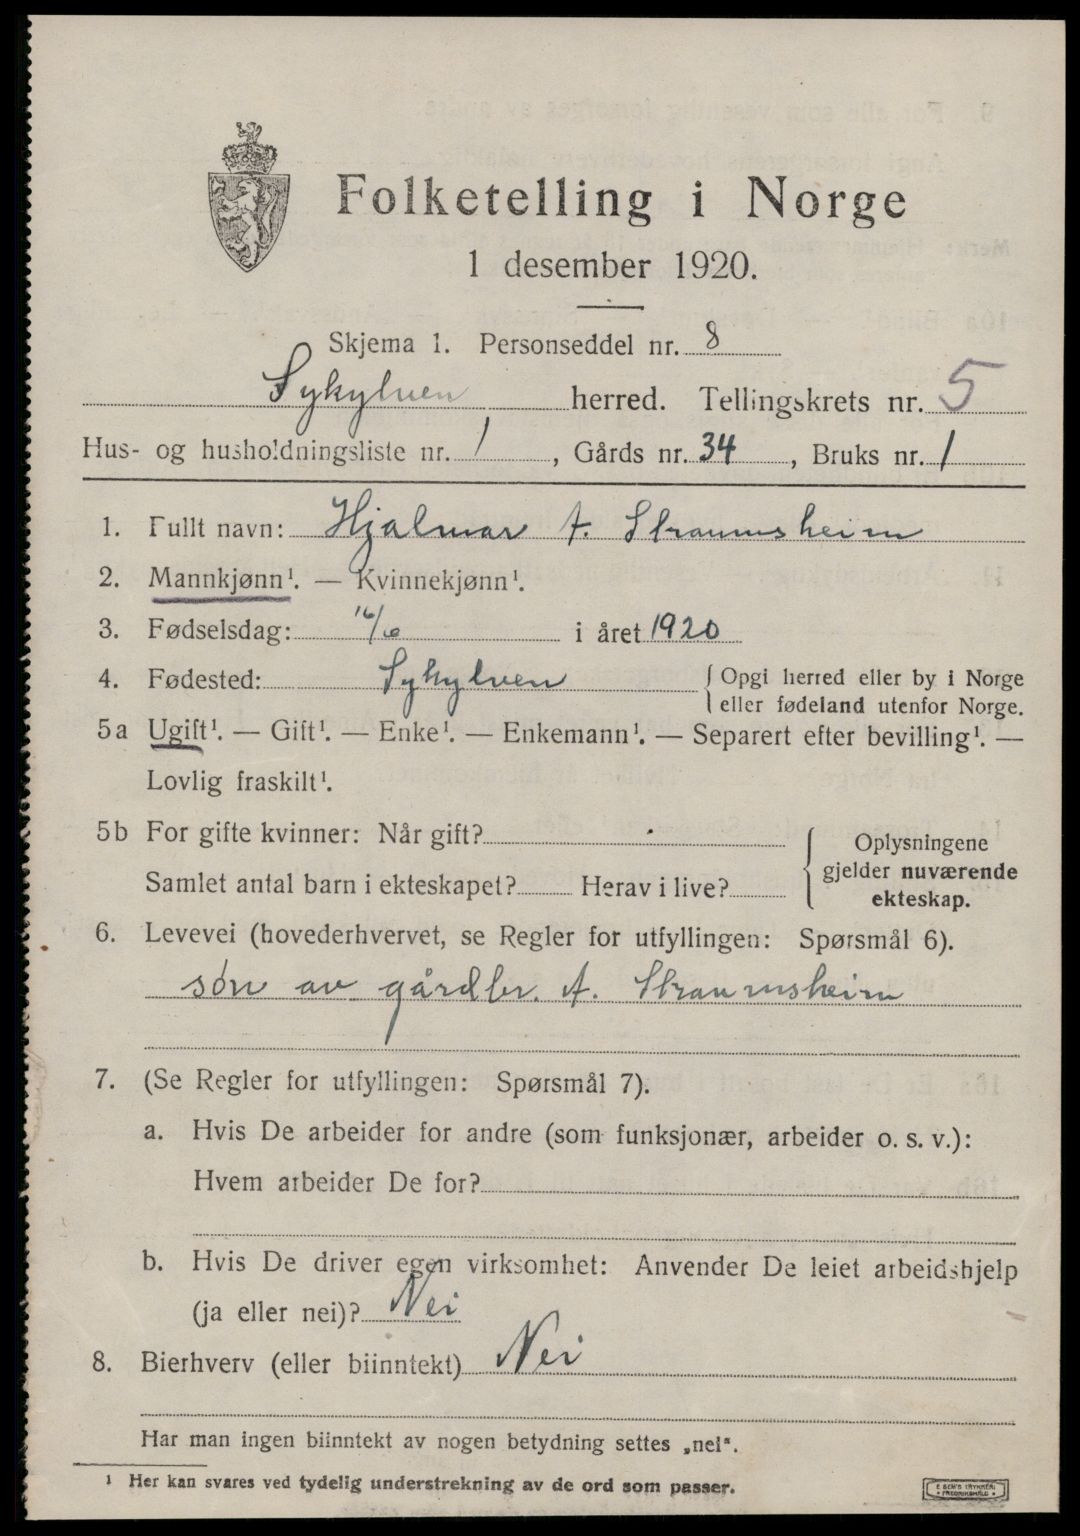 Folketelling i Norge
1 desember 1920.
Skjema 1. Personseddel nr. 8
Sykylven herred. Tellingskrets nr. 5
Hus- og husholdningsliste nr. 1, Gårds nr. 34, Bruks nr. 1
1. Fullt navn: Hjalmar A. Straumsheim
2. Mannkjønn¹. — Kvinnekjønn¹.
3. Fødselsdag: 16/6 i året 1920
4. Fødested: Sykylven { Opgi herred eller by i Norge
eller fødeland utenfor Norge.
5a Ugift¹. — Gift¹. — Enke¹. — Enkemann¹. — Separert efter bevilling¹. —
Lovlig fraskilt¹.
5b For gifte kvinner: Når gift?
Samlet antal barn i ekteskapet? Herav i live?
{ Oplysningene
gjelder nuværende
ekteskap.
6. Levevei (hovederhvervet, se Regler for utfyllingen: Spørsmål 6).
søn av gårdbr. A. Straumsheim
7. (Se Regler for utfyllingen: Spørsmål 7).
a. Hvis De arbeider for andre (som funksjonær, arbeider o. s. v.):
Hvem arbeider De for?
b. Hvis De driver egen virksomhet: Anvender De leiet arbeidshjelp
(ja eller nei)? Nei
8. Bierhverv (eller biinntekt) Nei
Har man ingen biinntekt av nogen betydning settes „nei“.
¹ Her kan svares ved tydelig understrekning av de ord som passer.